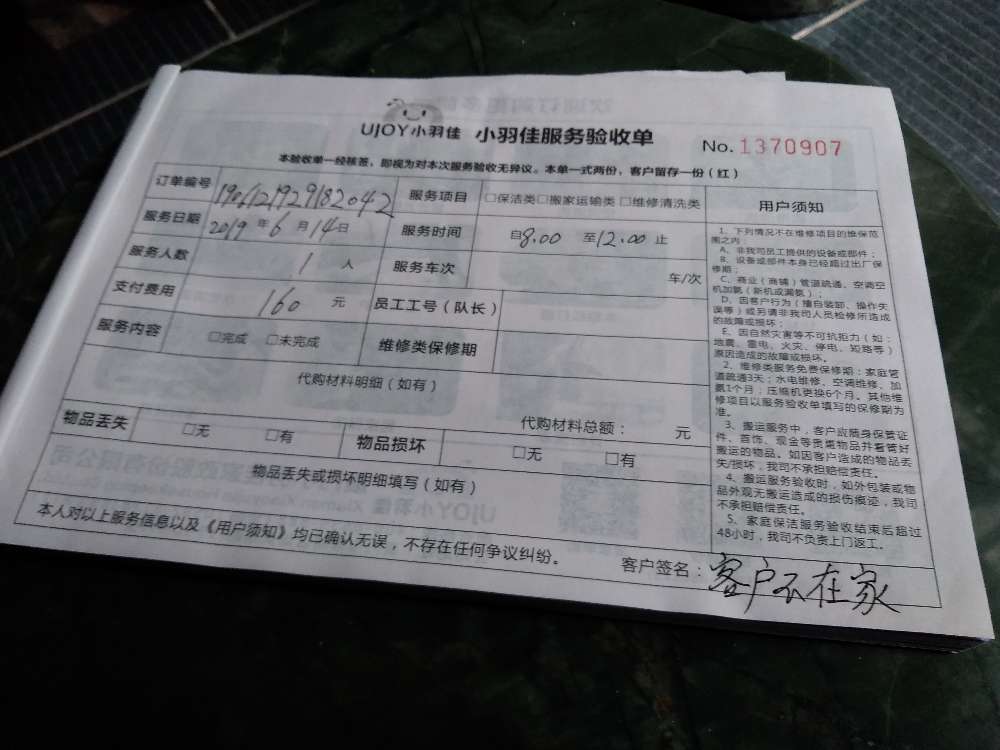 UJOY小羽佳 小羽佳服务验收单 No. 1370907
本验收单一经核签，即视为对本次服务验收无异议。本单一式两份，客户留存一份（红）
订单编号 190612192918 2042 服务项目 □保洁类□搬家运输类□维修清洗类
服务日期 2019年6月14日 服务时间 自8.00 至12.00止
服务人数 1人 服务车次 车/次
支付费用 160元 员工工号（队长）
服务内容 □完成 □未完成 维修类保修期
代购材料明细（如有）
代购材料总额： 元
物品丢失 □无 □有 物品损坏 □无 □有
物品丢失或损坏明细填写（如有）
本人对以上服务信息以及《用户须知》均已确认无误，不存在任何争议纠纷。
客户签名：客户不在家
用户须知
1、下列情况不在维修项目的维保范
围之内：
A、非我司员工提供的设备或部件；
B、设备或部件本身已经超过出厂保
修期；
C、商业（商铺）管道疏通、空调空
机加氨（新机或漏氨）；
D、因客户行为（擅自装卸、操作失
误等）或另请非我司人员检修所造成
的故障或损坏；
E、因自然灾害等不可抗拒力（如：
地震、雷电、火灾、停电、短路等）
原因造成的故障或损坏。
2、维修类服务免费保修期：家庭管
道疏通3天；水电维修、空调维修、加
氨1个月；压缩机更换6个月。其他维
修项目以服务验收单填写的保修期为
准。
3、搬运服务中，客户应随身保管证
件、首饰、现金等贵重物品并看管好
搬运的物品。如因客户造成的物品丢
失/损坏，我司不承担赔偿责任。
4、搬运服务验收时，如外包装或物
品外观无搬运造成的损伤痕迹，我司
不承担赔偿责任。
5、家庭保洁服务验收结束后超过
48小时，我司不负责上门返工。